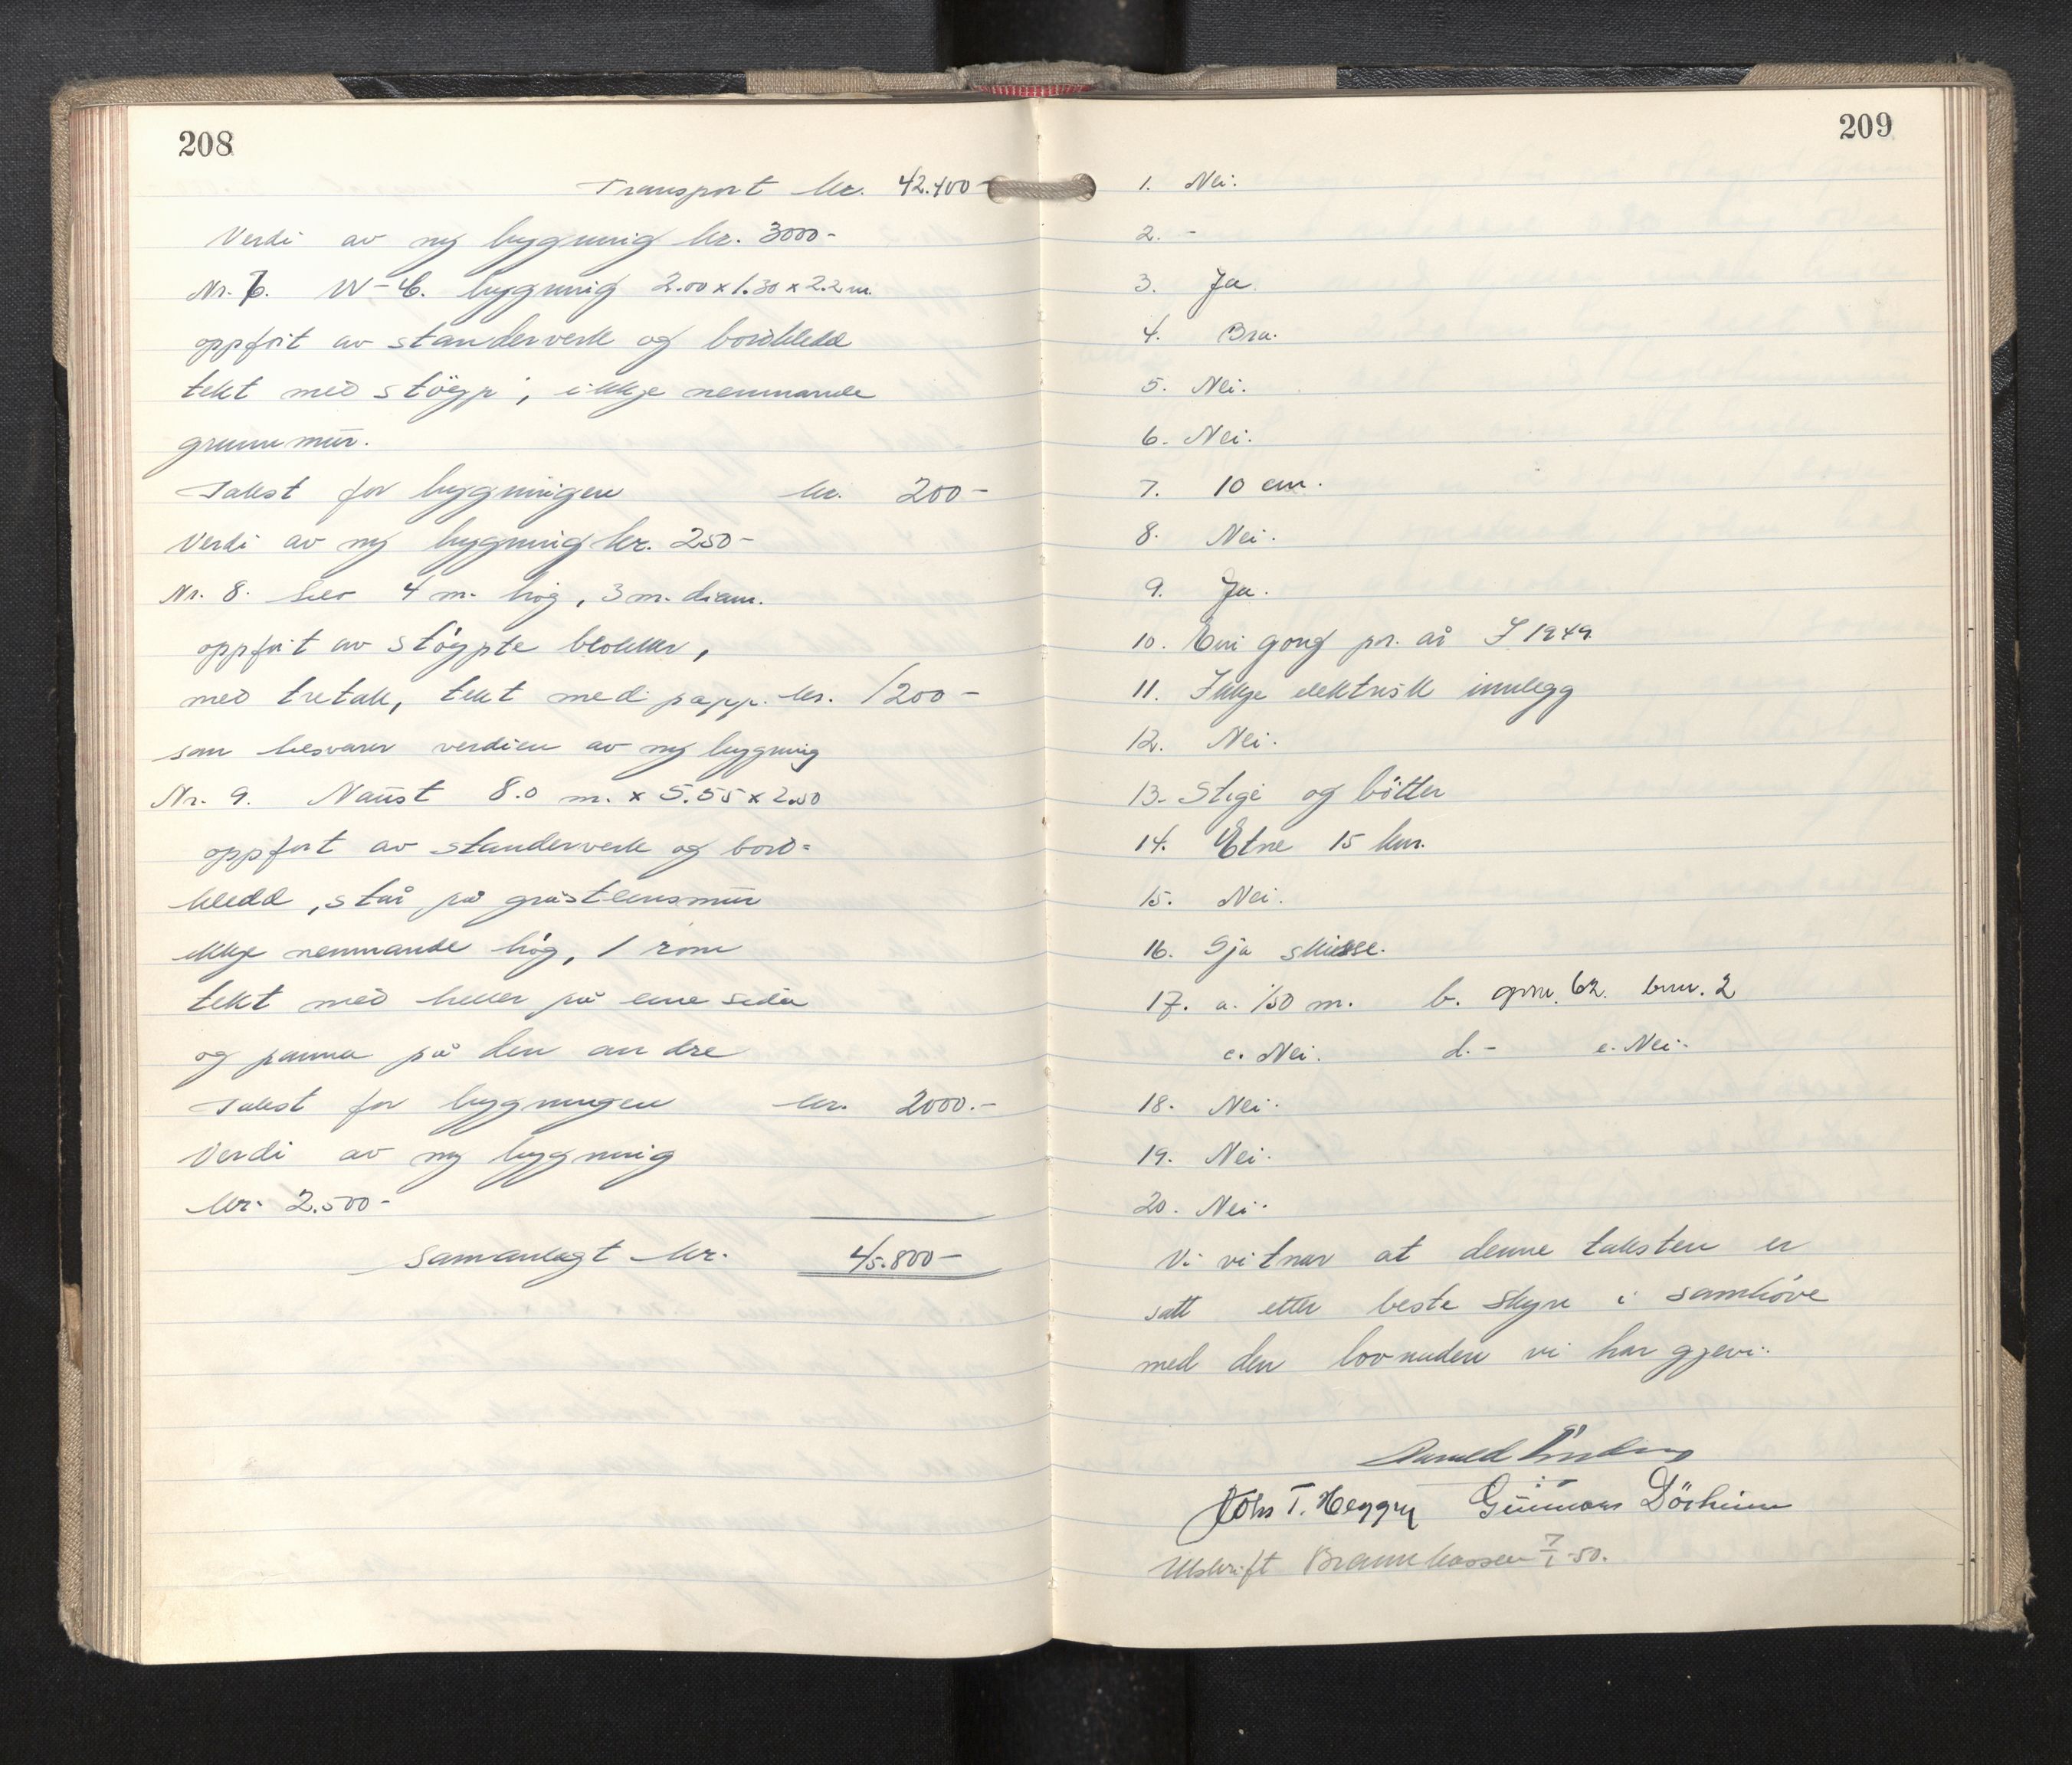 208
Transport kr. 42.400-
Verdi av ny bygning kr. 3000-
Nr. 7. W-C. bygning 2.00 x 1.30 x 2.2 m.
oppført av standerverk og bordkledd
tekt med støyp, ikkje nemnande
grunnmur.
Takst for bygningen kr. 200-
Verdi av ny bygning kr. 250-
Nr. 8. Silo 4 m. høg, 3 m. diam.
oppført av støypte blokker,
med tretak, tekt med papp. kr. 1200-
som besvarer verdien av ny bygning
Nr. 9. Naust 8.0 m. x 5.55 x 2.50
oppført av standerverk og bord=
kledd, står på gråsteinsmur
ikkje nemnande høg, 1 rom
tekt med heller på eine sida
og panna på den andre
Takst for bygningen kr. 2000.-
Verdi av ny bygning
kr. 2.500-
Samanlagt kr. 45.800-
209
1. Nei.
2. -
3. Ja
4. Bra.
5. Nei.
6. Nei.
7. 10 cm.
8. Nei.
9. Ja.
10. Ein gong pr. år I 1949
11. Ikkje elektrisk innlegg
12. Nei.
13. Stige og bøtter
14. Etne 15 km.
15. Nei.
16. Sjå skisse.
17. a. 150 m. b. gnr. 62. bnr. 2
c. Nei. d. - e. Nei.
18. Nei.
19. Nei.
20. Nei.
Vi vitnar at denne taksten er
satt etter beste skyn i samhøve
med den lovnaden vi har gjevi.
Johs T. Heggen Gunnar Dørheim
Utskrift Brannkassen 7/1-50.